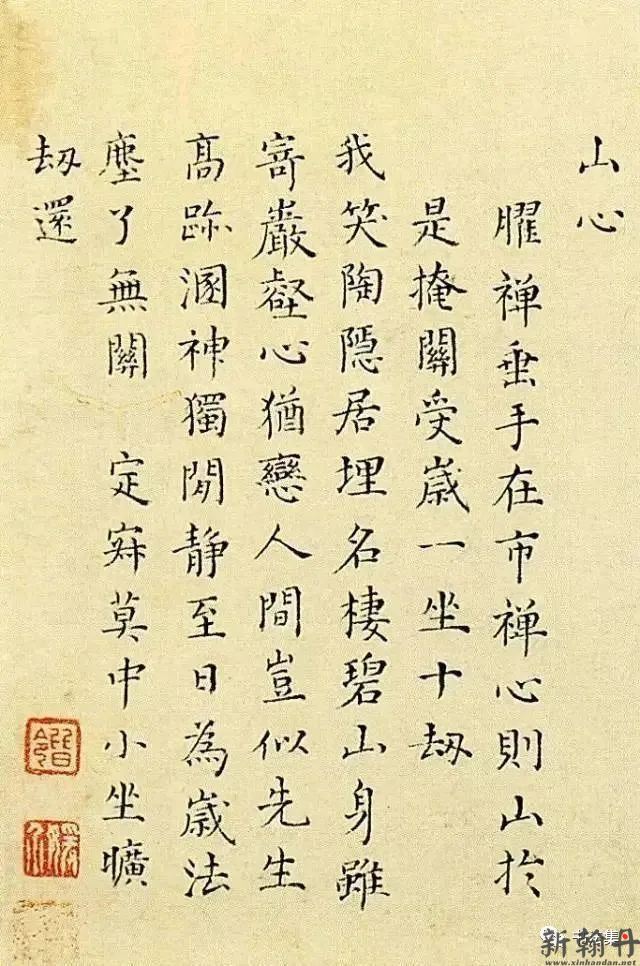 山心
臞禪垂手在市禪心則山扵
是掩關受歲一坐十刼
我笑陶隱居埋名棲碧山身雖
寄巖壑心猶戀人間豈似先生
高跡溷神獨閒靜至日為歲法
塵了無關 定寂莫中小坐曠
刼還
集
新翰丹
www.xinhandan.net